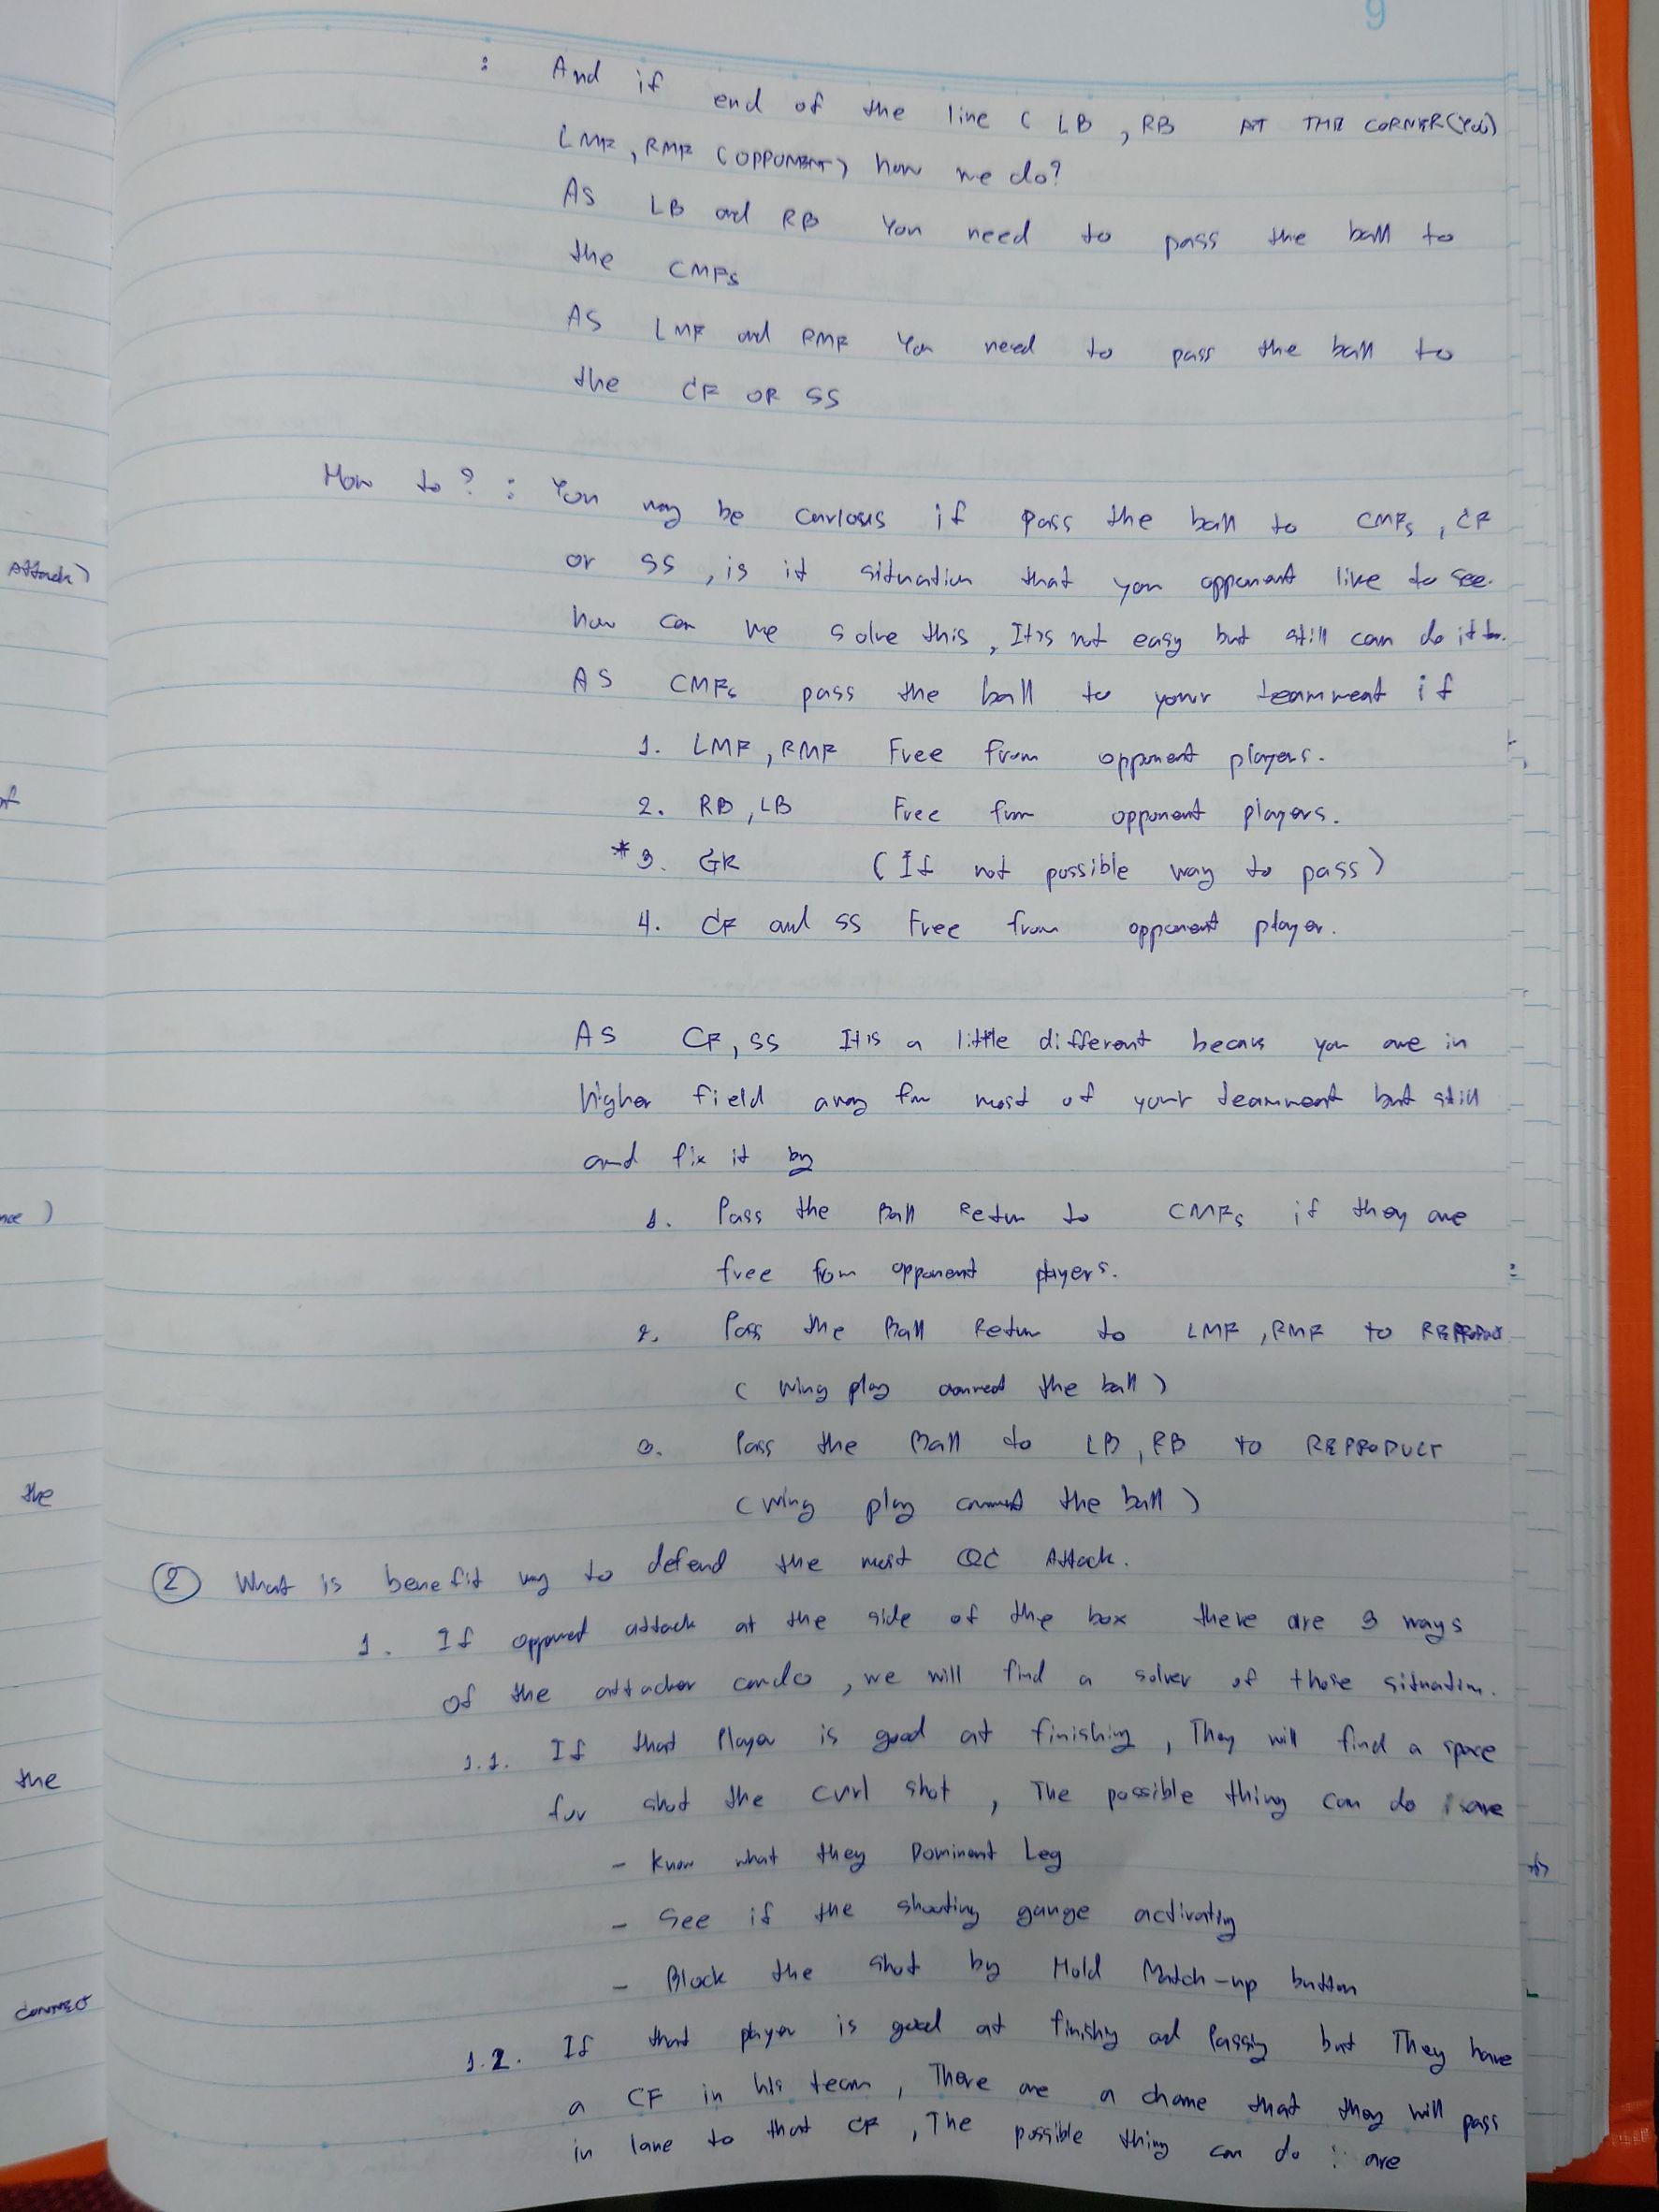 9
: And if end of the line ( LB , RB AT THE CORNER(You)
LMF , RMF (OPPONENT) how we do?
As LB and RB You need to pass the ball to
the CMFs
As LMF and RMF You need to pass the ball to
the CF OR SS
How to ? : You may be curious if pass the ball to CMFs , CF
or SS , is it situation that you opponent like to see.
how can we solve this , It is not easy but still can do it
As CMFs pass the ball to your teammeat if
1. LMF , RMF Free from opponent players.
2. RB , LB Free from opponent players.
*3. GK (If not possible way to pass)
4. CF and SS Free from opponent player.
As CF, SS It is a little different becaus you are in
higher field away from most of your teammeat but still
and fix it by
1. Pass the Ball Return to CMFs if they are
free from opponent players.
2. Pass the Ball Return to LMF , RMF to
( Wing play connect the ball )
3. Pass the Ball to LB , RB to REPRODUCT
( Wing play connect the ball )
② What is benefit way to defend the most QC Attack.
1. If opponent attack at the side of the box there are 3 ways
of the attacker can do , we will find a solver of those situation.
1.1. If that Player is good at finishing , They will find a space
for shot the curl shot , The possible thing can do are
- Know what they Dominant Leg
- See if the shooting gauge activating
- Block the shot by Hold Match-up button
1.2. If that player is good at finishing and Passing but They have
a CF in his team , There are a chance that they will pass
in lane to that CF , The possible thing can do : are
Attack)
of
)
the
the
connect